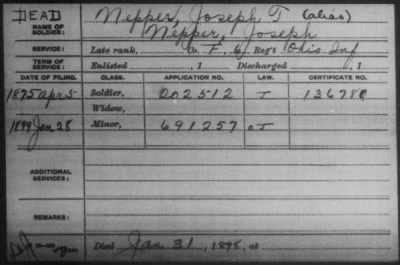 DEAD
NAME OF SOLDIER: Nepper, Joseph T (alias)
Nepper, Joseph
SERVICE: Late rank, Co. F, 6 Reg't Ohio Inf
TERM OF SERVICE: Enlisted , 1 Discharged , 1
DATE OF FILING. CLASS. APPLICATION NO. LAW. CERTIFICATE NO.
1875 Apr 5 Soldier, 202512 136780
Widow,
Jan 28 Minor, 691257
ADDITIONAL SERVICES:
REMARKS:
Died Jan 31, 1895, at